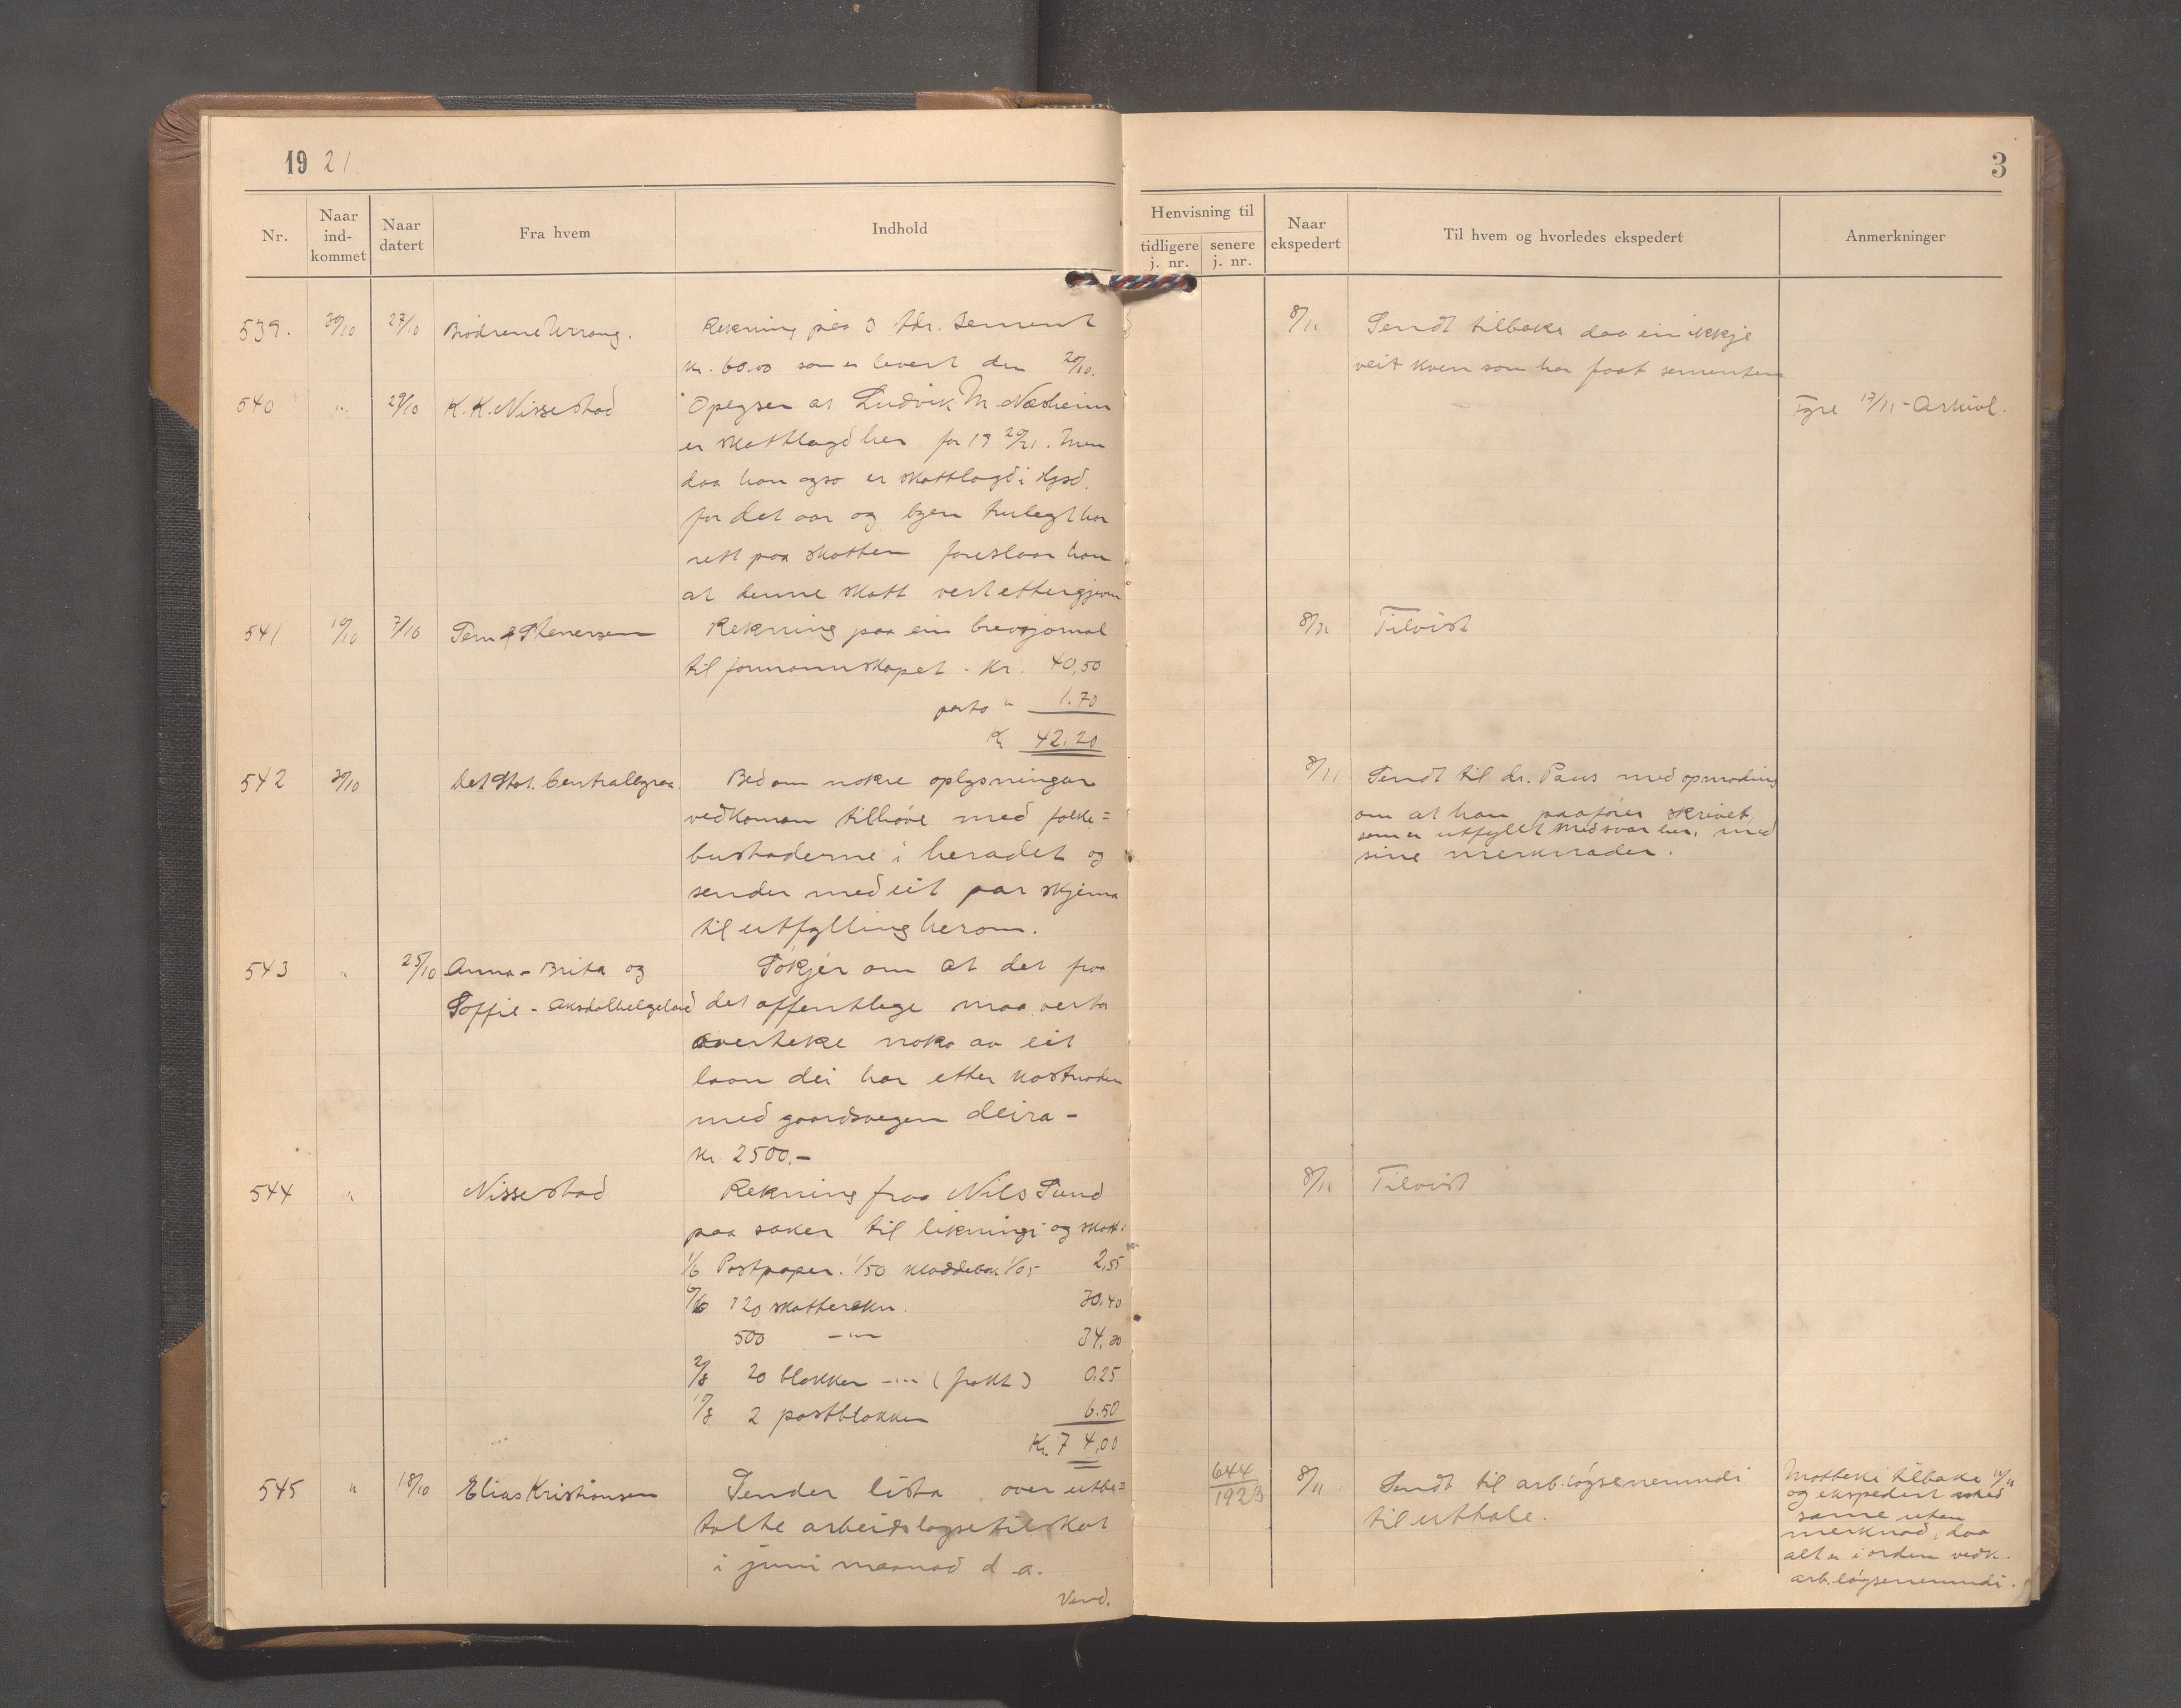 19 21
3
Nr.
Naar ind-kommet
Naar datert
Fra hvem
Indhold
Henvisning til
tidligere j. nr.
senere j. nr.
Naar ekspedert
Til hvem og hvorledes ekspedert
Anmerkninger
539. 30/10 27/10 Brødrene Rekning paa 3 tdr. sement
kr. 60.00 som er levert den 20/10.
8/11 Sendt tilbake daa ein ikkje
veit kven som har faat sementen
540 " 29/10 K. K. Nissestad Oplyser at Ludvik M. Næsheim
er skattlagd her for 19 20/21. Men
daa han ogso er skattlagd i Hgsd.
for det aar og byen truleg har
rett paa skatten foreslaar han
at denne skatt vert ettergjeven
Fyre 17/11 - Arkivl.
541 19/10 7/10 Sem & Stenersen Rekning paa ein brevjornal
til formannskapet - Kr. 40,50
porto " 1.70
Kr 42.20
8/11 Tilvist
542 30/10 Det Stat. Centralbyraa. Bed om nokre oplysningar
vedkoman tilhøve med folke=
bustaderne i heradet og
sender med eit par skjema
til utfylling herom.
8/11 Sendt til dr. Paus med opmoding
om at han paafører skrivet,
som er utfyllt med svar her, med
sine merknader.
543 " 25/10 Anna - Brita og Søkjer om at det fraa
Soffie - Aksdalhelgeland det offentlege maa verta
overteke noko av eit
laan dei har etter kostnaden
med gaardsvegen deira -
kr. 2500.-
544 " Nissestad Rekning fraa Nils Sund
paa saker til likning- og skatt.
1/6 Postpapir. 1/50 kladdebok 1/05 2,55
6/6 120 skatterekn. 30.40
500 -"- 34,30
2/8 20 blokker -"- (frakt) 0.25
19/8 2 postblokker 6.50
Kr. 74,00
8/11 Tilvist
545 " 18/10 Elias Kristiansen Sender lista over utbe=
talte arbeidslogsetilskot
i juni maanad d. a.
Vend.
644
1923
8/11 Sendt til arb.løgsenemndi
til uttale.
Motteki tilbake 11/11
og ekspedert med
same utan
merknad, daa
alt er i orden vedk.
arb.løgsenemndi.